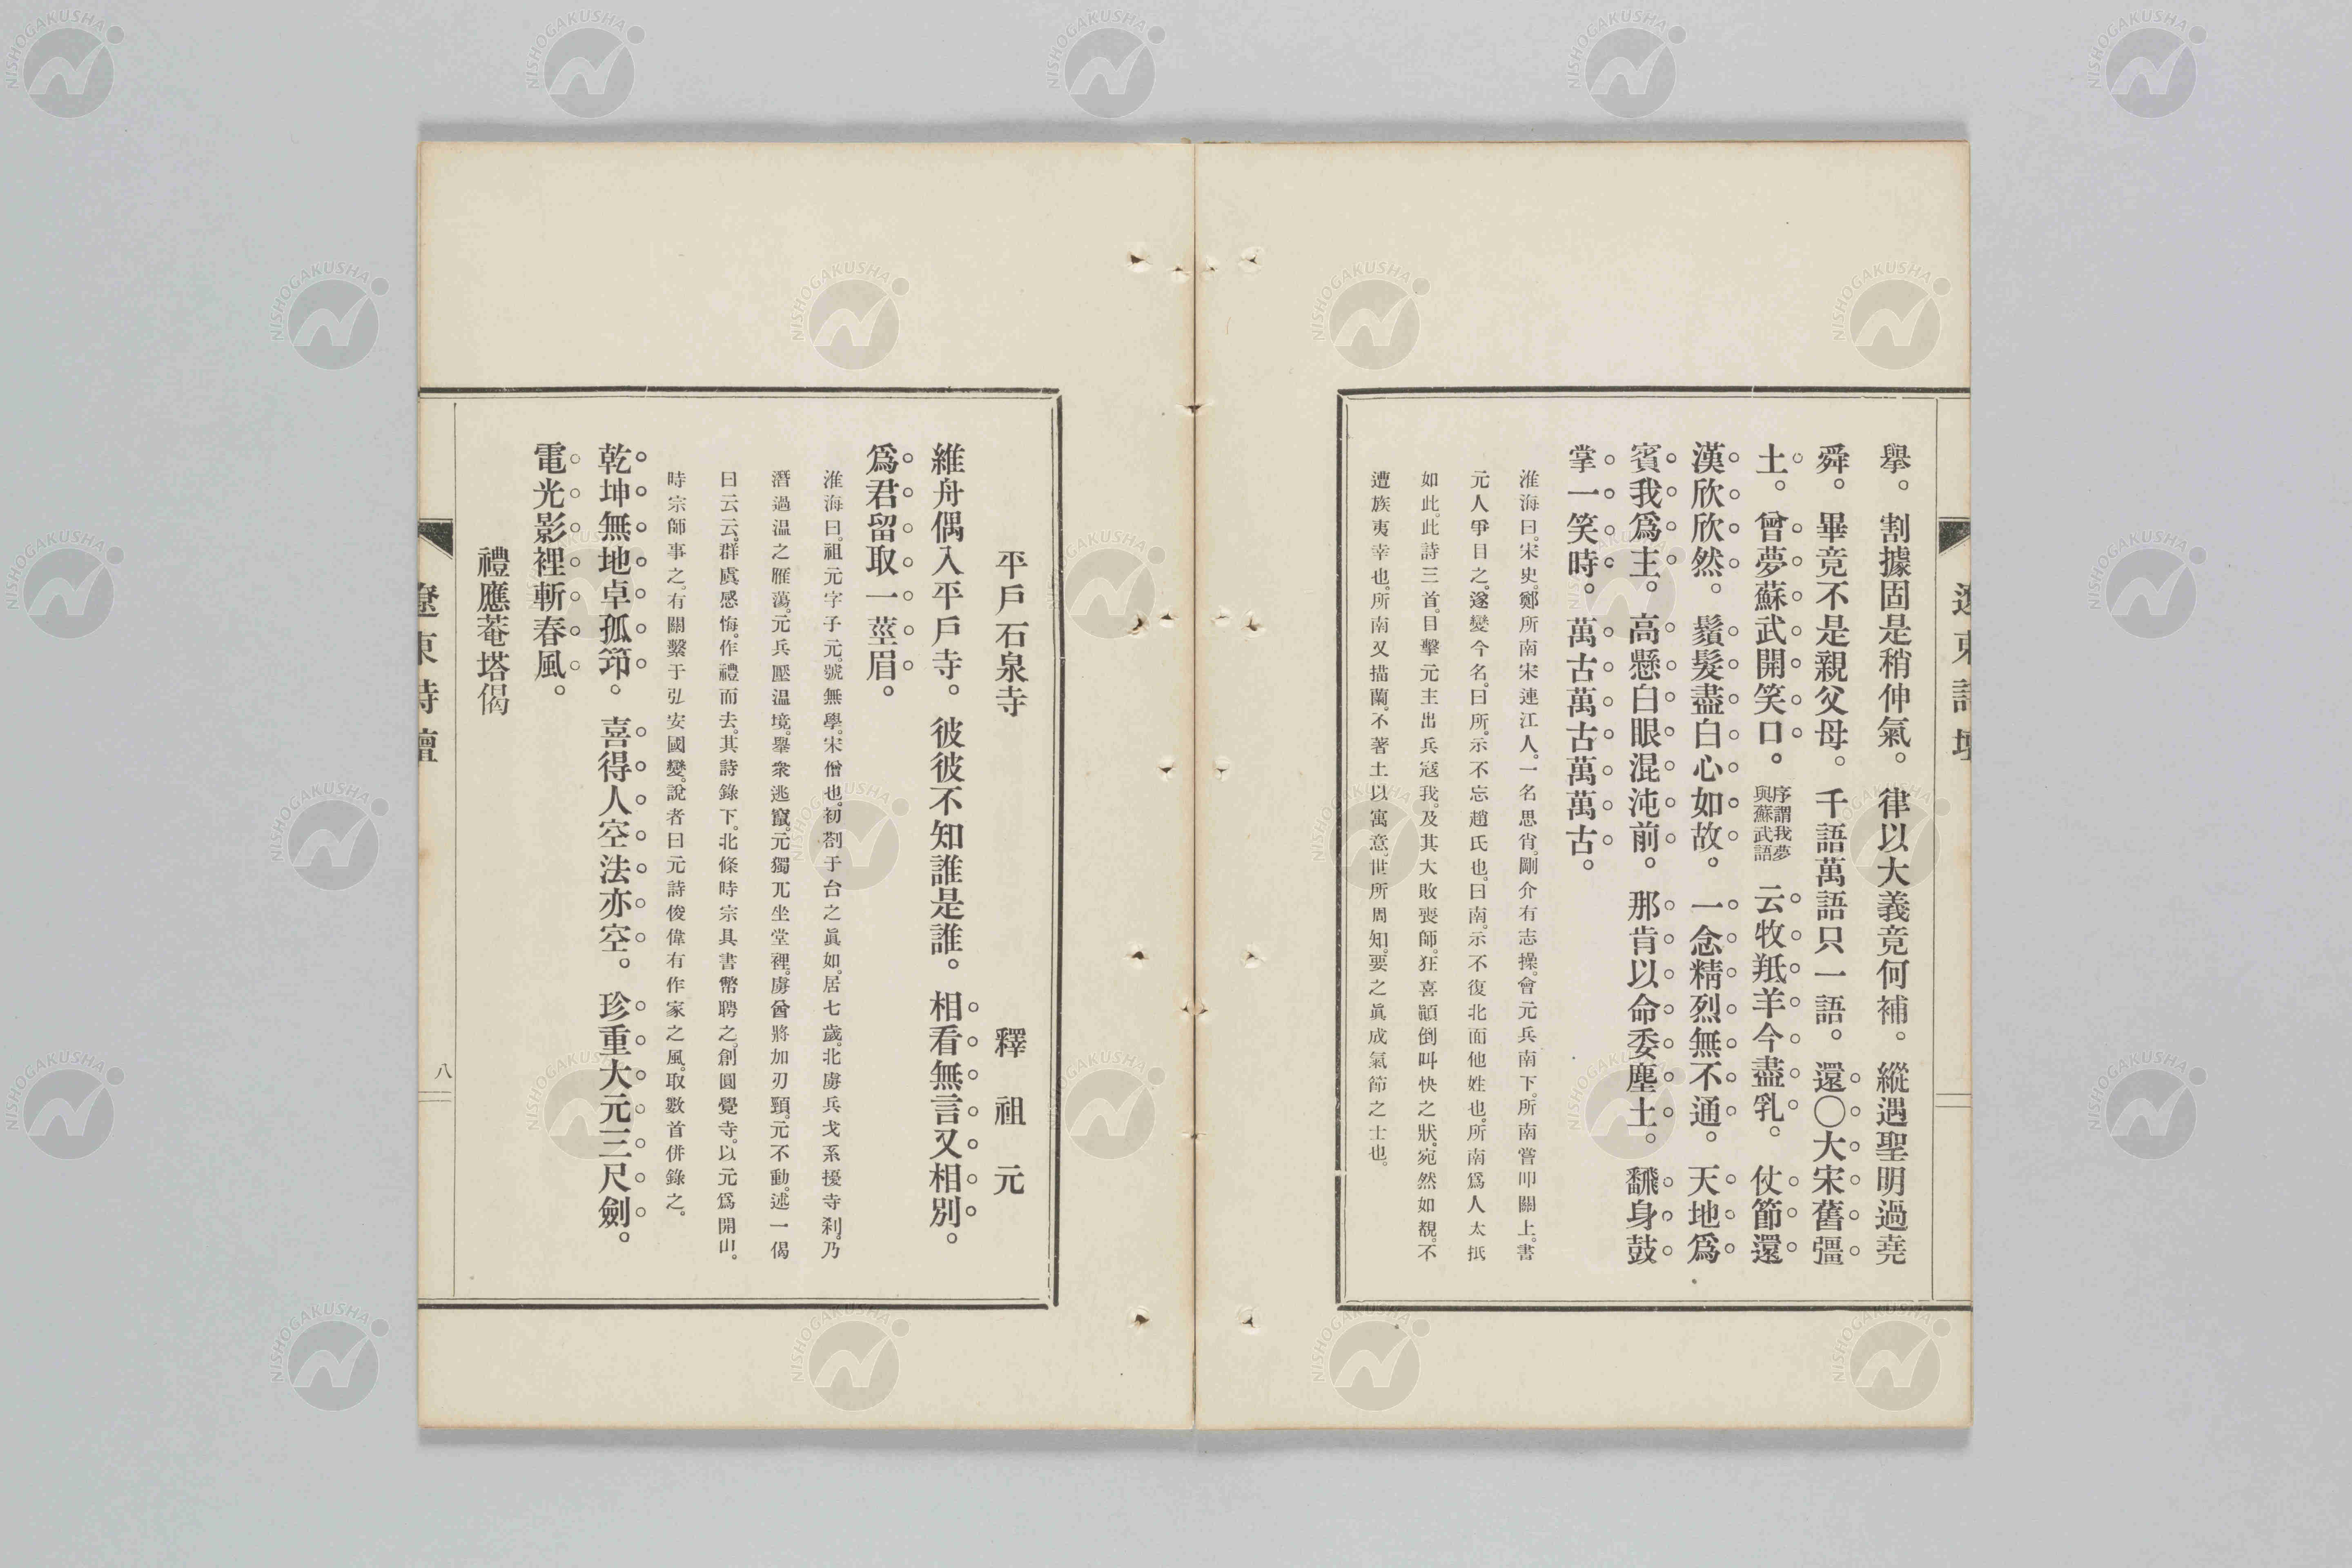 舉。割據固是稍伸氣。律以大義竟何補。縱遇聖明過堯
舜。畢竟不是親父母。千語萬語只一語。還〇大宋舊彊
土。曾夢蘇武開笑口。序謂我夢與蘇武語云牧羝羊今盡乳。仗節還
漢欣欣然。鬚髮盡白心如故。一念精烈無不通。天地爲
賓我爲主。高懸白眼混沌前。那肯以命委塵土。飜身鼓
掌一笑時。萬古萬古萬萬古。
淮海曰。宋史。鄭所南宋連江人。一名思肖。剛介有志操。會元兵南下。所南嘗叩關上。書
元人爭目之。遂變今名。曰所。示不忘趙氏也。曰南。示不復北面他姓也。所南爲人太抵
如此。此詩三首。目擊元主出兵寇我。及其大敗喪師。狂喜顚倒叫快之狀。宛然如覩。不
遭族夷幸也。所南又描蘭。不著土以寓意。世所周知。要之眞成氣節之士也。
平戶石泉寺 釋祖元
維舟偶入平戶寺。彼彼不知誰是誰。相看無言又相別。
爲君留取一莖眉。
淮海曰。祖元字子元。號無學。宋僧也。初剳于台之眞如。居七歲。北虜兵戈系擾寺刹。乃
潛過温之雁蕩。元兵壓温境。擧衆逃竄。元獨兀坐堂裡。虜酋將加刃頸。元不動。述一偈
曰云云。群虞感悔。作禮而去。其詩錄下。北條時宗具書幣聘之。創圓覺寺。以元爲開山。
時宗師事之。有關繫于弘安國變。說者曰元詩俊偉有作家之風。取數首併錄之。
乾坤無地卓孤筇。喜得人空法亦空。珍重大元三尺劍。
電光影裡斬春風。
禮應菴塔偈
遼東詩壇
八